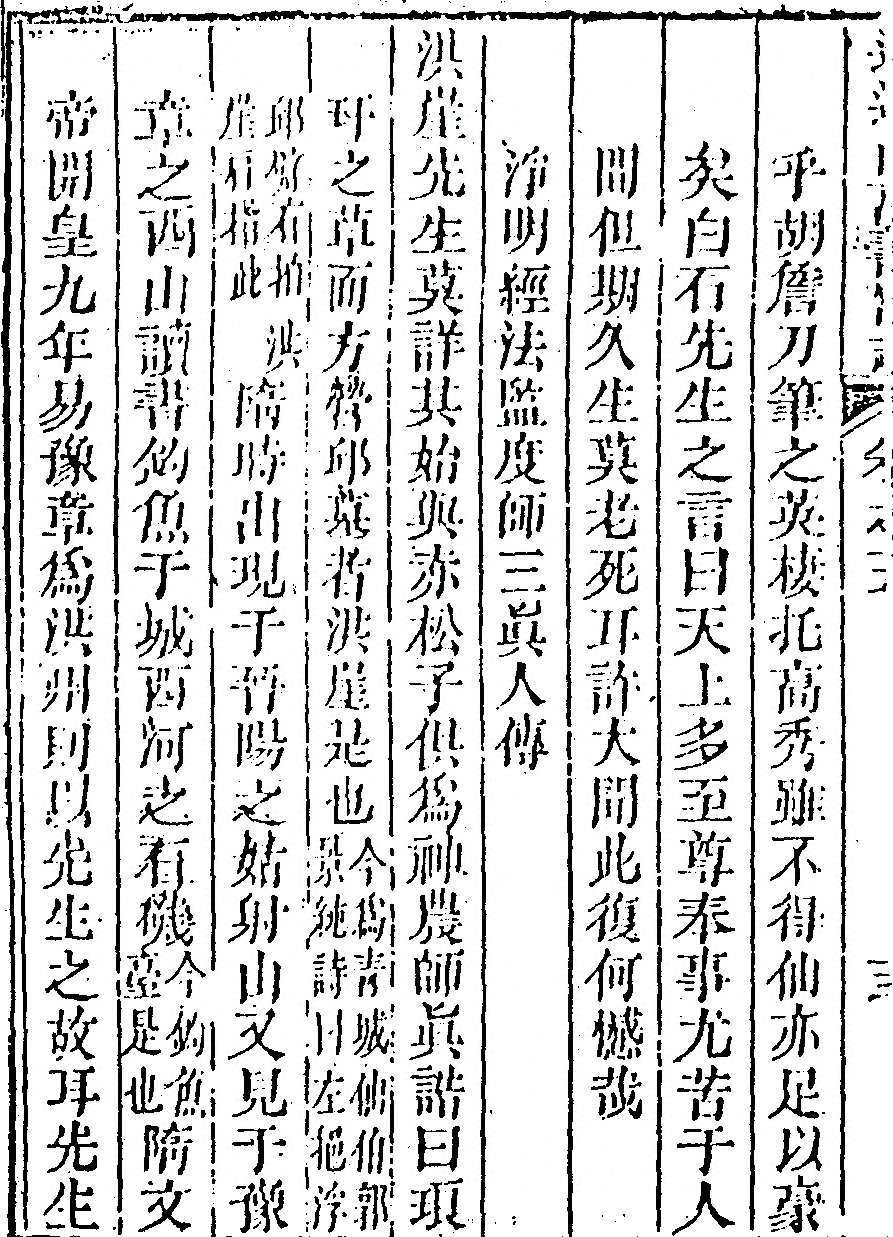 乎胡詹刀筆之英棲托高秀雖不得仙亦足以豪
矣白石先生之言曰天上多至尊奉事尤苦于人
間但期久生莫老死耳許大聞此復何憾哉
淨明經法監度師三眞人傳
洪崖先生莫詳其始與赤松子供爲神農師眞誥曰項
耳之草而方營邱墓者洪崖是也今爲青城仙伯郭景純詩曰左挹浮
邱袖右拍洪崖肩指此隋時出現于晉陽之姑射山又見于豫
章之西山讀書釣魚于城西河之石磯今釣魚臺是也隋文
帝開皇九年易豫章爲洪州則以先生之故耳先生